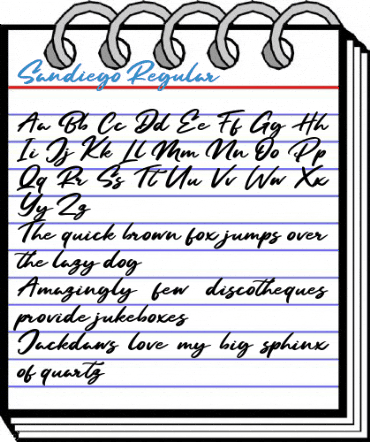 Sandiego Regular
Aa Bb Cc Dd Ee Ff Gg Hh
Ii Jj Kk Ll Mm Nn Oo Pp
Qq Rr Ss Tt Uu Vv Ww Xx
Yy Zz
The quick brown fox jumps over
the lazy dog
Amazingly few discotheques
provide jukeboxes
Jackdaws love my big sphinx
of quartz